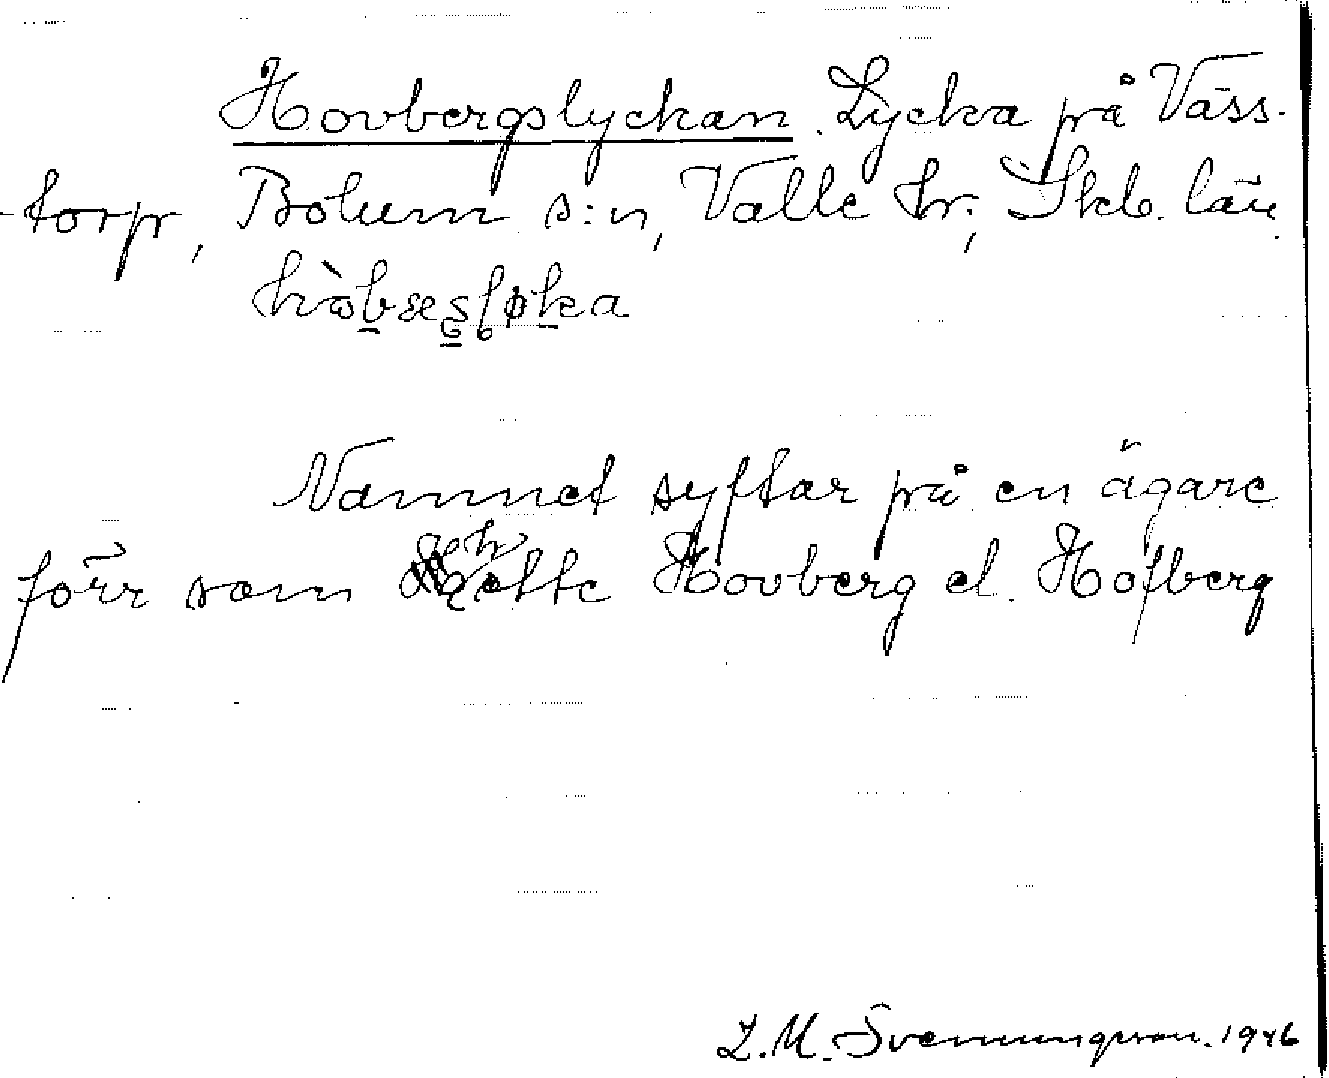 Hovbergslyckan. Lycka på Väss-
-torp, Bolum s:n, Valle hr; Skb. län.
Namnet syftar på en ägare
förr som hette Hovberg el. Hofberg
L.M. Svenungsson. 1946